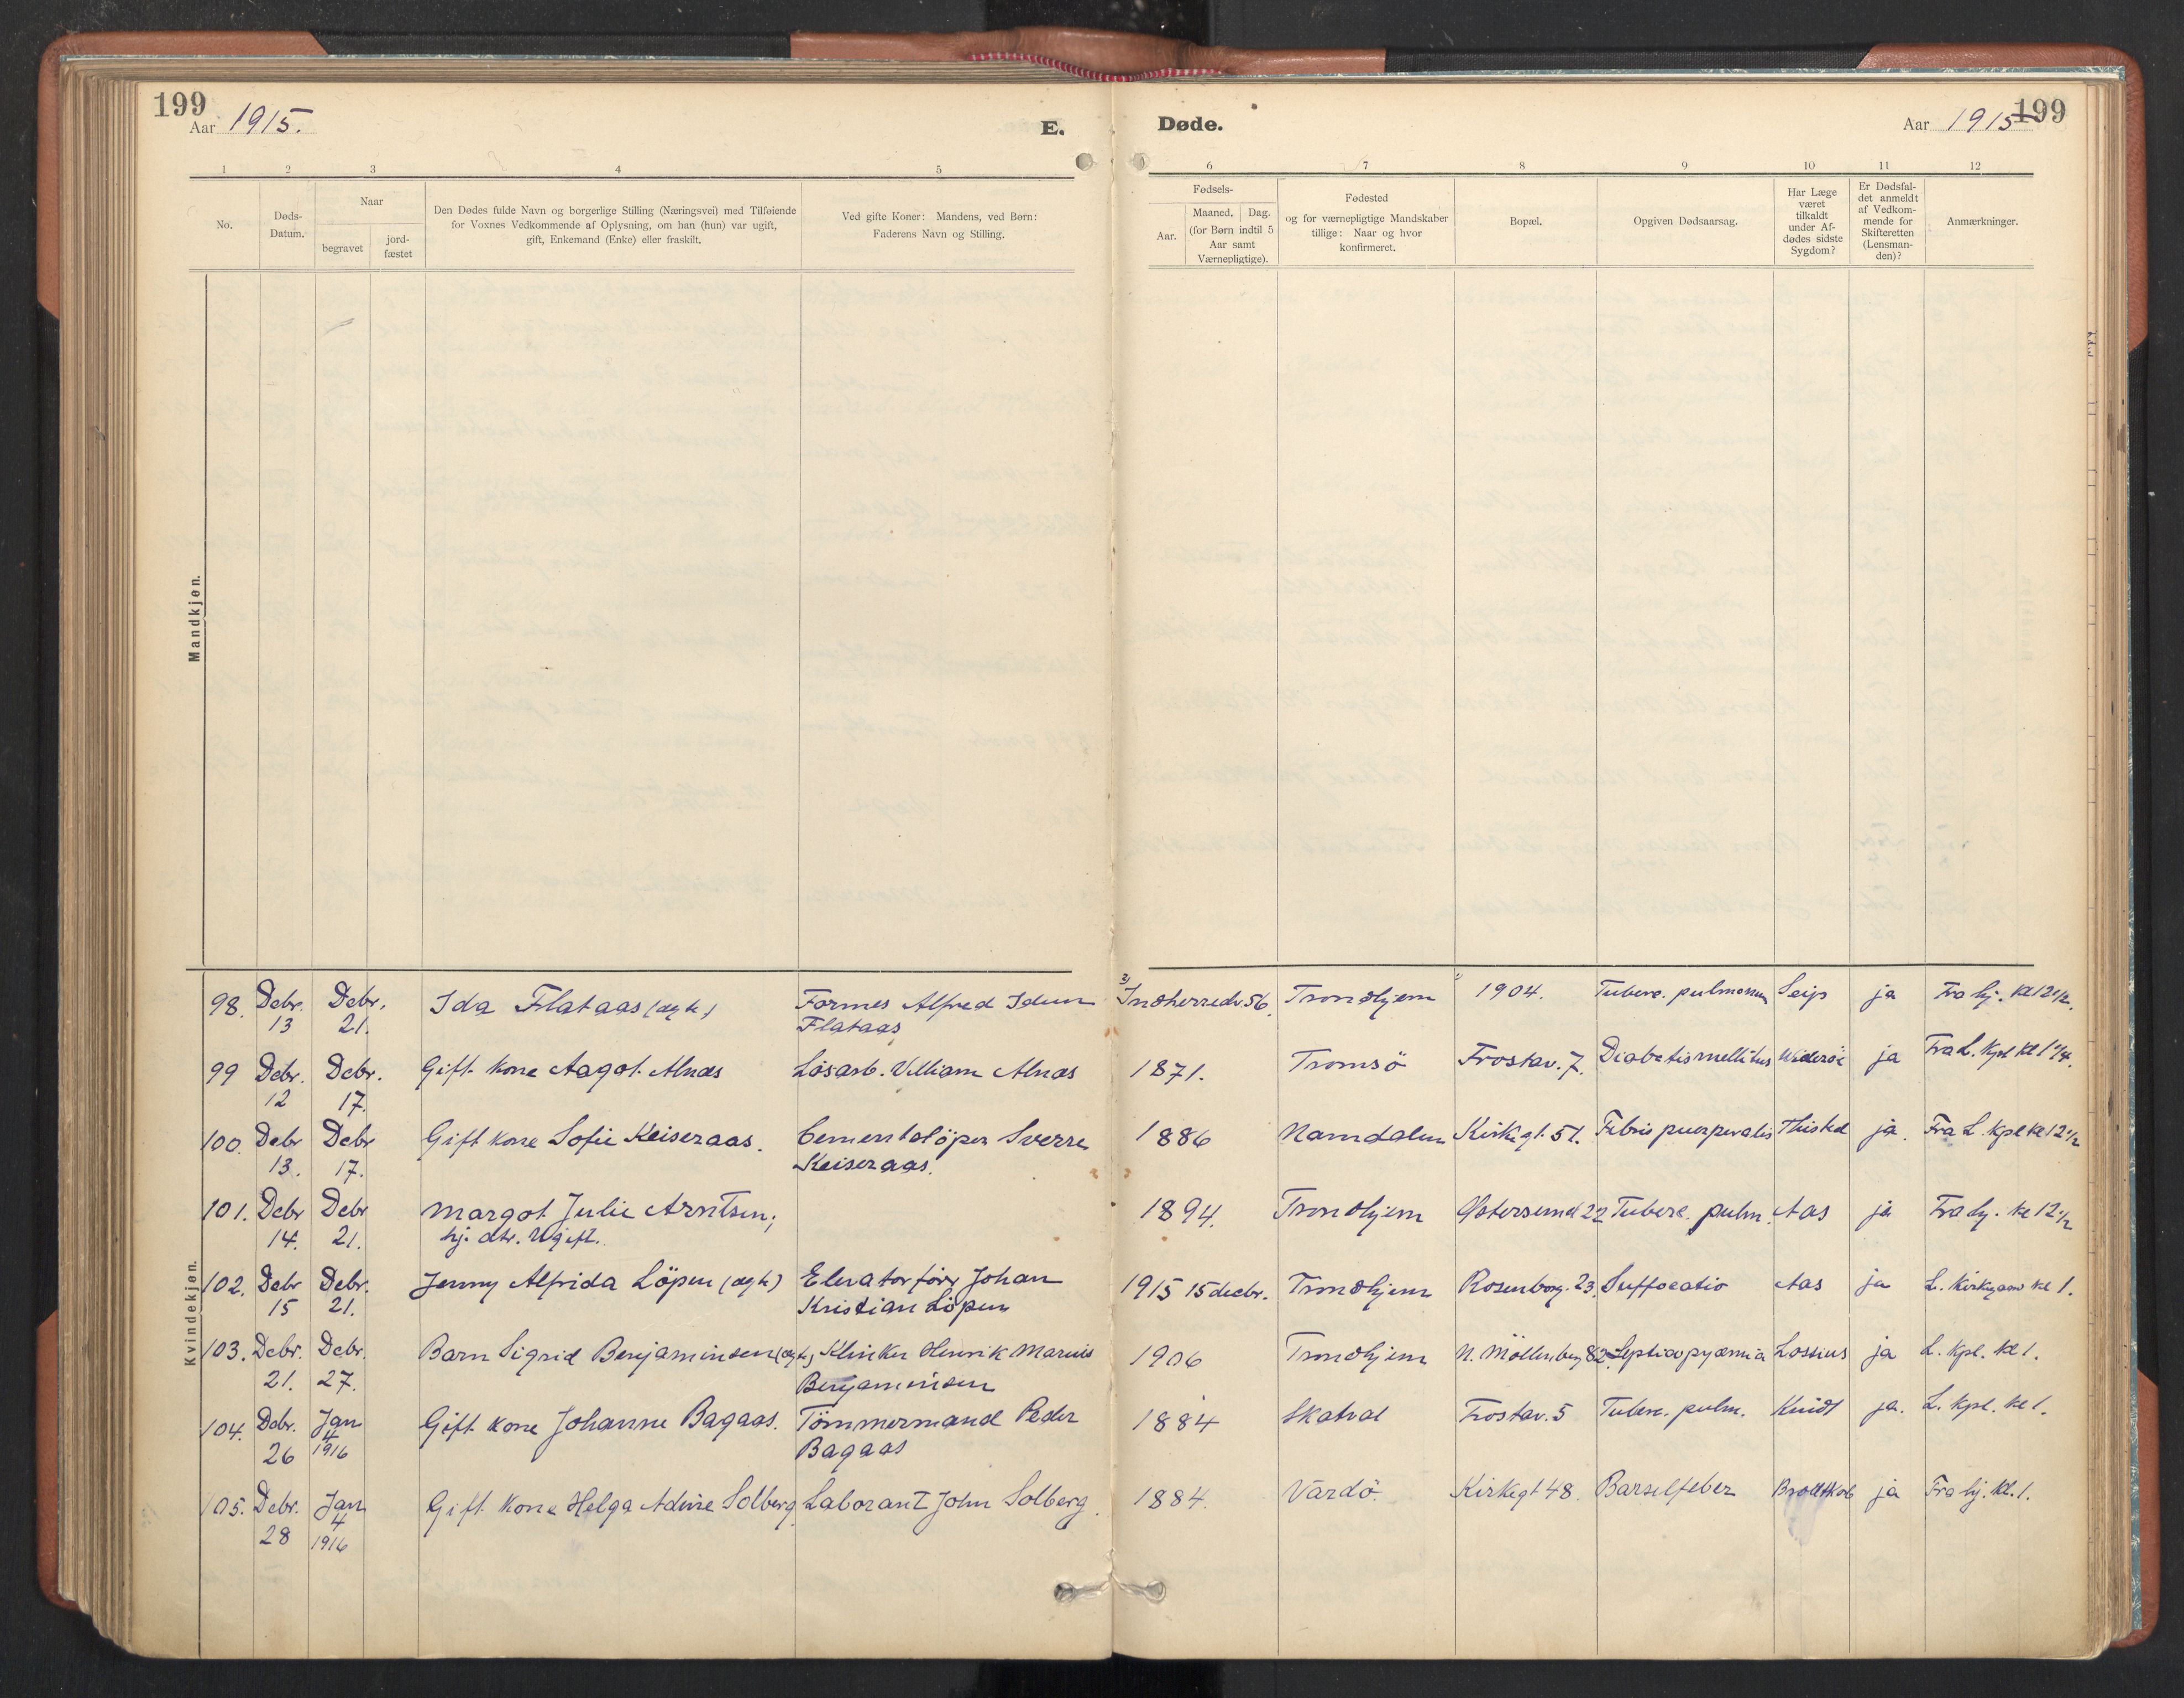 199
Aar 1915.
E.
1 2 3 4 5
No.
Døds-
Datum.
Naar
begravet
jord-
fæstet
Den Dødes fulde Navn og borgerlige Stilling (Næringsvei) med Tilføiende
for Voxnes Vedkommende af Oplysning, om han (hun) var ugift,
gift, Enkemand (Enke) eller fraskilt.
Ved gifte Koner: Mandens, ved Børn:
Faderens Navn og Stilling.
Døde.
Aar 1915
199
6 7 8 9 10 11 12
Fødsels-
Aar.
Maaned, Dag.
(for Børn indtil 5
Aar samt
Værnepligtige).
Fødested
og for værnepligtige Mandskaber
tillige: Naar og hvor
konfirmeret.
Bopæl.
Opgiven Dødsaarsag.
Har Læge
været
tilkaldt
under Af-
dødes sidste
Sygdom?
Er Dødsfal-
det anmeldt
af Vedkom-
mende for
Skifteretten
(Lensman-
den)?
Anmærkninger.
Mandkjøn.
Kvindekjøn.
98. Debr. Debr. Ida Flataas (ægte) Formes Alfred Idun 2) Indherredv 56. Trondhjem 2 1904. Tuberc. pulmonum Seip ja Fra hj. kl 12 1/2.
13 21. Flataas
99 Debr. Debr. Gift kone Aagot Alnæs Løsarb. Villiam Alnæs 1871. Tromsö Frostav. 7. Diabetis mellitus Wideröe ja Fra L. kpl kl 1 1/4.
12 17.
100. Debr Debr Gift kone Sofie Keiseraas. Cementstöper Sverre 1886 Namdalen Kirkegt. 51. Febris puerperalis Thisted ja. Fra L. kpl kl 12 1/2
13. 17. Keiseraas.
101. Debr Debr Margot Julie Arntsen; 1894. Trondhjem Ostersund 22 Tuberc. pulm. Aas ja Fra hj. kl 12 1/2
14. 21. hj. dtr. Ugift.
102. Debr Debr. Jenny Alfrida Löpen (ægte) Elevatorförer Johan 1915 15 decbr. Trondhjem Rosenborg. 23. Suffocatio Aas ja L. Kirkegaard kl 1.
15 21. Kristian Löpen
103. Debr. Debr. Barn Sigrid Benjaminsen (ægte) Klinker Henrik Marius 1906 Trondhjem N. Möllenberg 82. Septicopyæmia Lossius ja L. kpl. kl 1.
21. 27. Benjaminsen
104. Debr. Jan Gift kone Johanne Bagaas. Tömmermand Peder 1884 Skatval Frostav. 5 Tuberc. pulm. Knidt ja. L. kpl. kl 1.
26 4 1916 Bagaas
105. Debr. Jan Gift kone Helga Adine Solberg. Laborant John Solberg. 1884. Vardö. Kirkegt 48. Barselfeber ja Fra hj. kl. 1.
28 4 1916